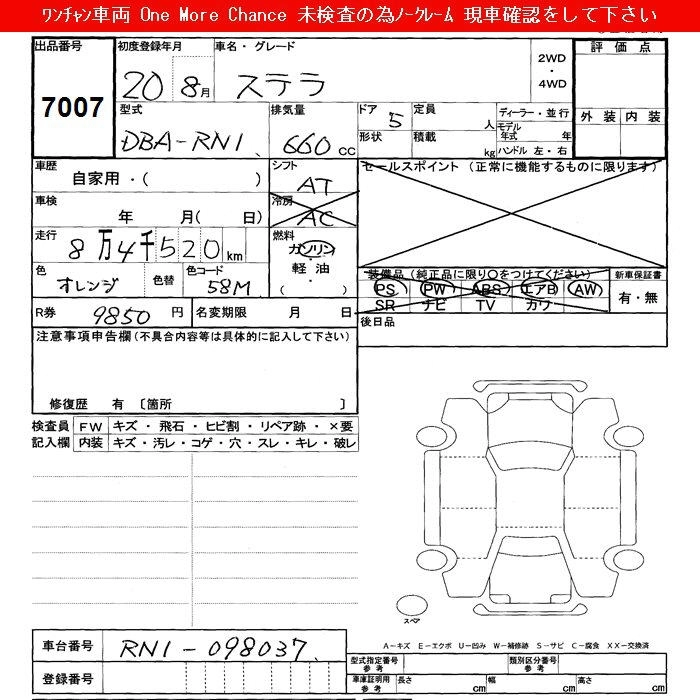 ﾜﾝﾁｬﾝ車両 One More Chance 未検査の為ﾉｰｸﾚｰﾑ 現車確認をして下さい
出品番号 初度登録年月 車名・グレード 評価点
7007 20 8月 ステラ 2WD ・ 4WD
型式 排気量 ドア 定員 ディーラー・並行 外装 内装
DBA-RN1 660 cc 5 人 モデル年式 年
形状 積載 kg ハンドル 左・右
車歴 シフト セールスポイント (正常に機能するものに限ります)
自家用・( ) AT
車検 冷房
年 月( 日) AC
走行 燃料
8万4千520km ガソリン
色 色替 色コード 軽油
オレンジ 58M ( ・ )
装備品(純正品に限り○をつけてください) 新車保証書
PS PW ABS エアB AW 有・無
SR ナビ TV カワ
R券 9850円 名変期限 月 日 後日品
注意事項申告欄(不具合内容等は具体的に記入して下さい)
修復歴 有 〔箇所 〕
検査員 FW キズ・飛石・ヒビ割・リペア跡・×要
記入欄 内装 キズ・汚レ・コゲ・穴・スレ・キレ・破レ
スペア
A－キズ E－エクボ U－凹み W－補修跡 S－サビ C－腐食 XX－交換済
車台番号 RN1-098037
型式指定番号 参考 類別区分番号 参考
登録番号
車庫証明用 参考 長さ cm 幅 cm 高さ cm